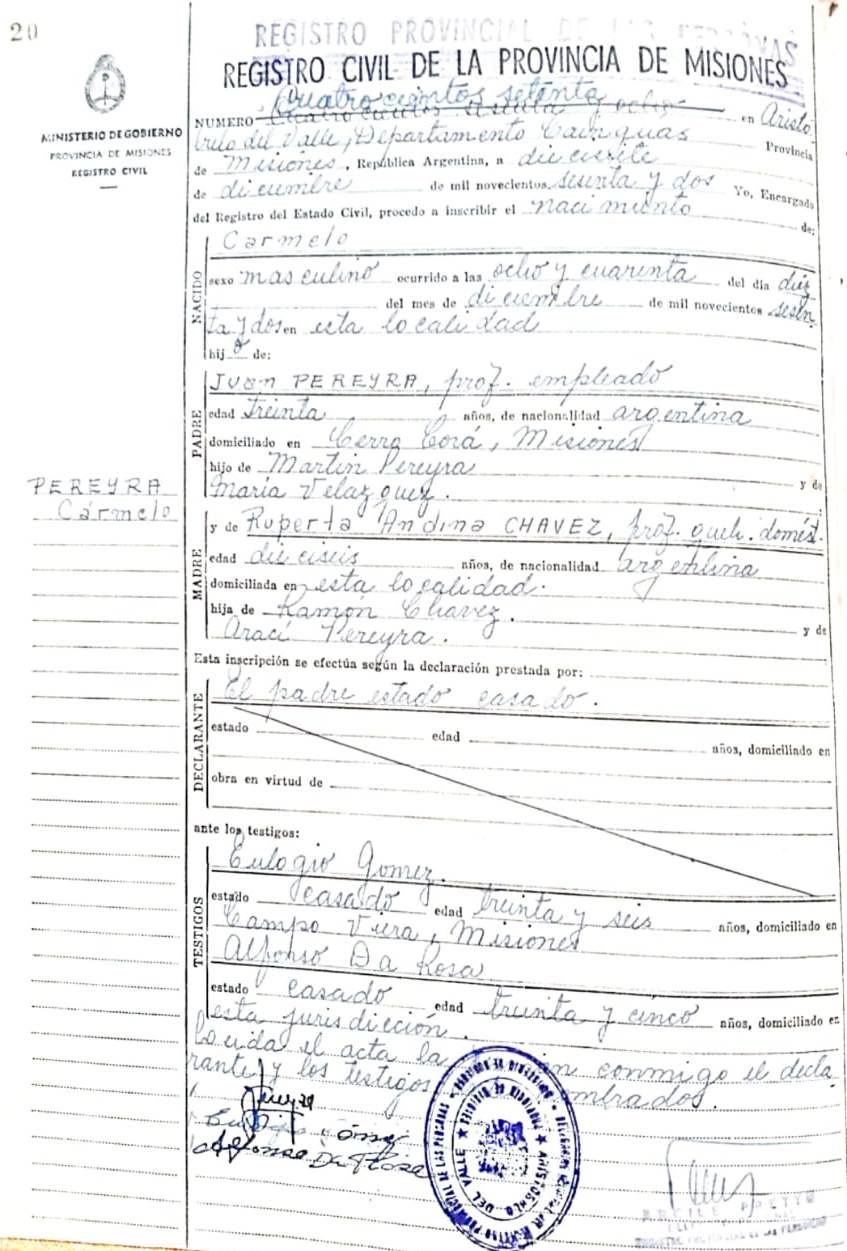 20
REGISTRO PROVINCIAL DE LAS PERSONAS
REGISTRO CIVIL DE LA PROVINCIA DE MISIONES
MINISTERIO DE GOBIERNO
PROVINCIA DE MISIONES
REGISTRO CIVIL
Cuatrocientos setenta
NUMERO Cuatrocientos setenta y ocho en Aristó
bulo del Valle, Departamento Cainguas Provincia
de Misiones, República Argentina, a diecisiete
de diciembre de mil novecientos sesenta y dos Yo, Encargado
del Registro del Estado Civil, procedo a inscribir el nacimiento de:
NACIDO
Carmelo
sexo masculino ocurrido a las ocho y cuarenta del día diez
del mes de diciembre de mil novecientos sesen
ta y dos en esta localidad
hijo de:
PADRE
Juan PEREYRA, prof. empleado
edad treinta años, de nacionalidad argentina
domiciliado en Cerro Corá, Misiones
hijo de Martin Pereyra y de
María Velazquez.
PEREYRA
Carmelo
MADRE
y de Ruperta Andina CHAVEZ, prof. queh. domést.
edad dieciseis años, de nacionalidad argentina
domiciliada en esta localidad.
hija de Ramón Chavez. y de
Aracì Pereyra.
Esta inscripción se efectúa según la declaración prestada por:
DECLARANTE
El padre estado casado.
estado edad años, domiciliado en
obra en virtud de
ante los testigos:
TESTIGOS
Eulogio Gomez.
estado casado edad treinta y seis años, domiciliado en
Campo Viera, Misiones
Alfonso Da Rosa
estado casado edad treinta y cinco años, domiciliado en
esta jurisdicción.
Leida el acta la conmigo el decla
rante y los testigos mbrados.
Eulogio Gómez
Alfonso Da Rosa
REGISTRO PROVINCIAL DE LAS PERSONAS
ARISTOBULO DEL VALLE